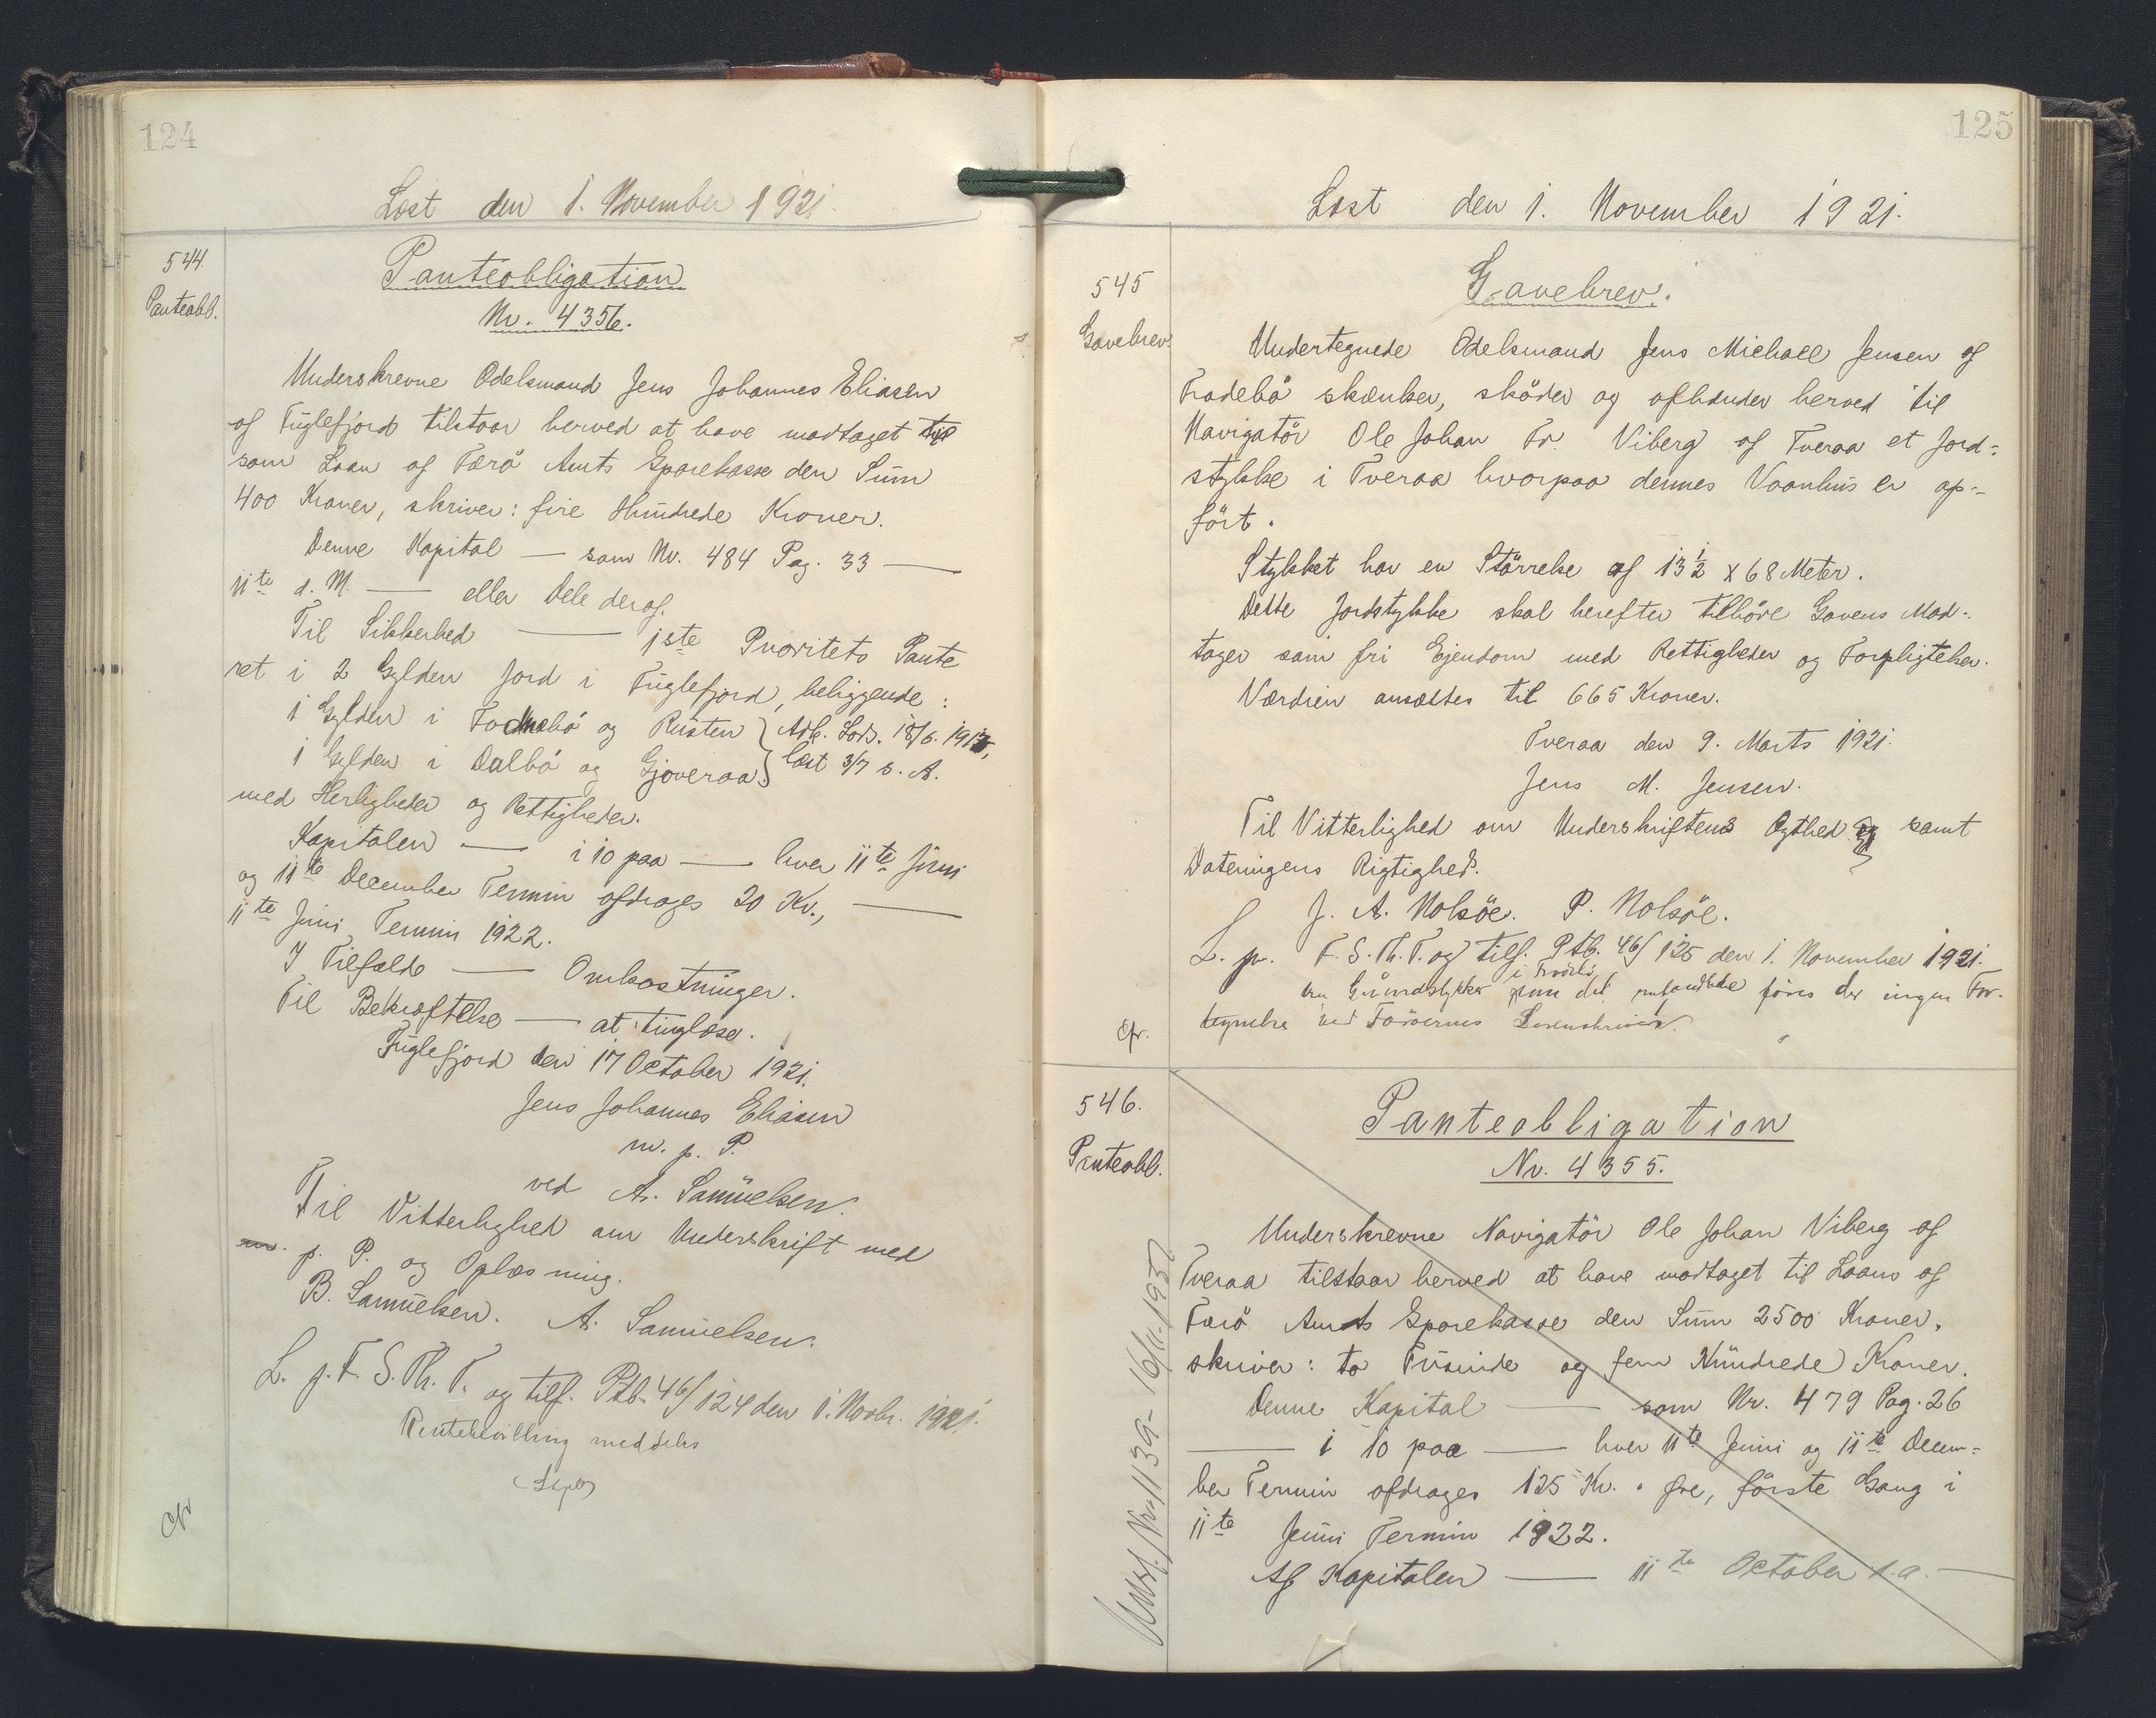 124
Læst den 1. November 1921.
544.
Panteobl.
Panteobligation
Nr. 4356.
Underskrevne Odelsmand Jens Johannes Eliasen
af Fuglefjord tilstaar herved at have modtaget til
som Laan af Færø Amts Sparekasse den Sum
400 Kroner, skriver: fire Hundrede Kroner.
Denne Kapital — som Nr. 484 Pag. 33 —
11te d. M. — eller Dele deraf.
Til Sikkerhed — 1ste Prioritets Pante
ret i 2 Gylden Jord i Fuglefjord, beliggende:
1 Gylden i og Rusten } Adk. Lods. 18/6. 1915,
1 Gylden i Dalbö og Gjoveraa } læst 3/7 s. A.
med Herligheder og Rettigheder.
Kapitalen — i 10 paa — hver 11te Juni
og 11te December Termin afdrages 20 Kr., —
11te Juni Termin 1922.
I Tilfælde — Omkostninger.
Til Bekræftelse — at tinglæse.
Fuglefjord den 17 October 1921.
Jens Johannes Eliasen
m. p. P.
ved A. Samuelsen.
Til Vitterlighed om Underskrift med
m. p. P. og Oplæsning.
B. Samuelsen. A. Samuelsen.
L. p. F. S. Th. T. og tilf. Ptb. 46/124 den 1. Novbr. 1921.
Rentebevilling meddeles
Cfr
125
Læst den 1. November 1921.
545
Gavebrev.
Gavebrev.
Undertegnede Odelsmand Jens Michael Jensen af
Frodebö skænker, sköder og afhænder herved til
Navigatör Ole Johan Fr. Viberg af Tveraa et Jord-
stykke i Tveraa hvorpaa dennes Vaanhus er op-
fört.
Stykket har en Störrelse af 13 1/2 x 68 Meter.
Dette Jordstykke skal herefter tilhöre Gavens Mod-
tager som fri Ejendom med Rettigheder og Forpligtelser.
Værdien ansættes til 665 Kroner.
Tveraa den 9. Marts 1921.
Jens M. Jensen.
Til Vitterlighed om Underskriftens Ægthed og samt
Dateringens Rigtighed.
J. A. Nolsöe. P. Nolsöe.
L. p. F. S. Th. T. og tilf. Ptb. 46/125 den 1. November 1921.
Grundstykker i som det föres der ingen For-
tegnelse ved Færöernes Sorenskriveri.
Cfr.
546.
Panteobl.
Panteobligation
Nr. 4355.
Underskrevne Navigatör Ole Johan Viberg af
Tveraa tilstaar herved at have modtaget til Laans af
Færö Amts Sparekasse den Sum 2500 Kroner,
skriver: to Tusinde og fem Hundrede Kroner.
Denne Kapital — som Nr. 479 Pag. 26
— i 10 paa — hver 11te Juni og 11te Decem-
ber Termin afdrages 125 Kr. . Øre, förste Gang i
11te Juni Termin 1922.
Af Kapitalen — 11te October d. a. —
Udsl. Nr. 1139 - 16/11. 1936